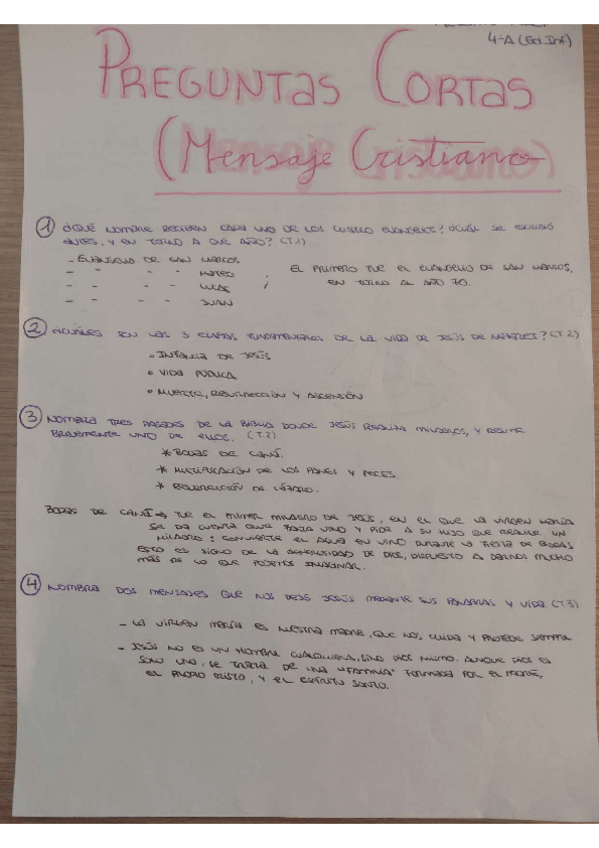 4-A (Ed.Inf)
PREGUNTAS CORTAS
(Mensaje Cristiano)
① ¿QUÉ NOMBRE RECIBEN CADA UNO DE LOS CUATRO EVANGELIOS? ¿CUÁL SE ESCRIBIÓ
ANTES, Y EN TORNO A QUÉ AÑO? (T.1)
- EVANGELIO DE SAN MARCOS
- " " " MATEO
- " " " LUCAS
- " " " JUAN
; EL PRIMERO FUE EL EVANGELIO DE SAN MARCOS,
EN TORNO AL AÑO 70.
② ¿CUÁLES SON LAS 3 ETAPAS FUNDAMENTALES DE LA VIDA DE JESÚS DE NAZARET? (T.2)
• INFANCIA DE JESÚS
• VIDA PÚBLICA
• MUERTE, RESURRECCIÓN Y ASCENSIÓN
③ NOMBRA TRES PASAJES DE LA BIBLIA DONDE JESÚS REALIZA MILAGROS, Y RESUME
BREVEMENTE UNO DE ELLOS. (T.2)
* BODAS DE CANÁ.
* MULTIPLICACIÓN DE LOS PANES Y PECES.
* RESURRECCIÓN DE LÁZARO.
BODAS DE CANÁ → FUE EL PRIMER MILAGRO DE JESÚS, EN EL QUE LA VIRGEN MARÍA
SE DA CUENTA QUE FALTA VINO Y PIDE A SU HIJO QUE REALICE UN
MILAGRO: CONVIERTE EL AGUA EN VINO DURANTE LA FIESTA DE BODAS
ESTO ES SIGNO DE LA GENEROSIDAD DE DIOS, DISPUESTO A DARNOS MUCHO
MÁS DE LO QUE PODEMOS IMAGINAR.
④ NOMBRA DOS MENSAJES QUE NOS DEJA JESÚS MEDIANTE SUS PALABRAS Y VIDA. (T.3)
- LA VIRGEN MARÍA ES NUESTRA MADRE, QUE NOS CUIDA Y PROTEGE SIEMPRE
- JESÚS NO ES UN HOMBRE CUALQUIERA, SINO DIOS MISMO. AUNQUE DIOS ES
SOLO UNO, SE TRATA DE UNA "FAMILIA" FORMADA POR EL PADRE,
EL PROPIO CRISTO, Y EL ESPÍRITU SANTO.